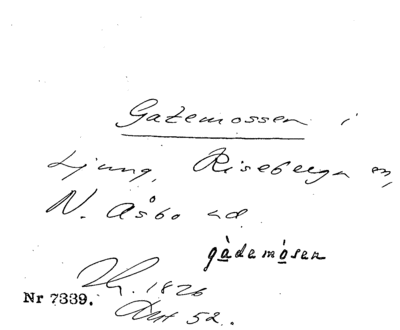 Gatemossen i
Ljung, Riseberga sn,
N. Åsbo hd.
gàdemósen
Nr 7339.
1826
52.